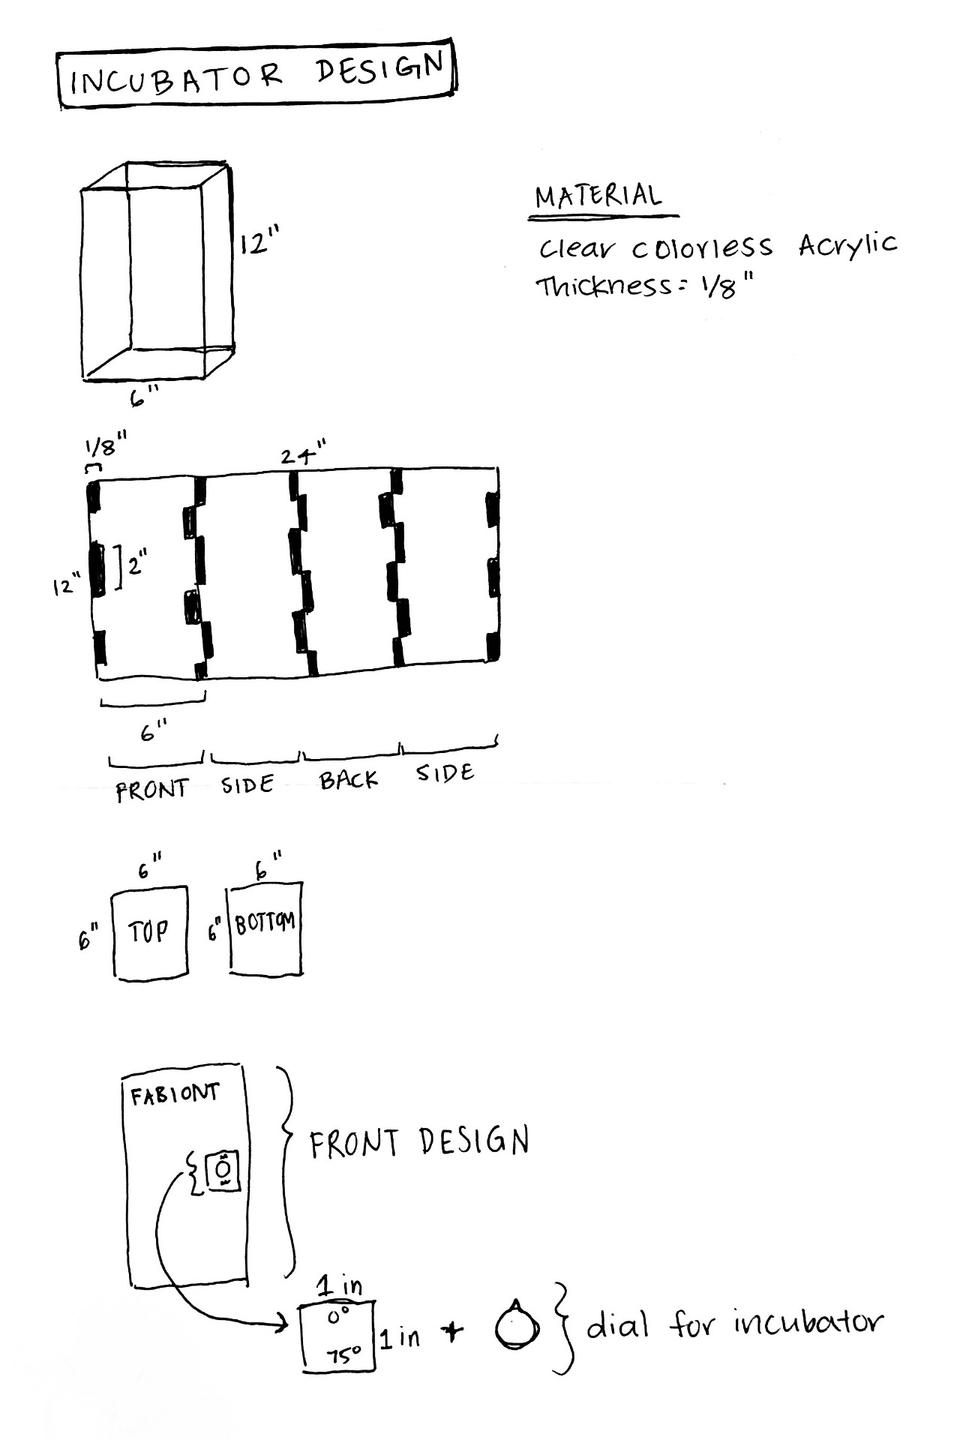 INCUBATOR DESIGN
12"
6"
MATERIAL
Clear Colorless Acrylic
Thickness= 1/8"
1/8"
24"
12"
2"
6"
FRONT SIDE BACK SIDE
6"
6"
TOP
6"
6"
BOTTOM
FABIONT
FRONT DESIGN
1 in
0°
75°
1 in
+
dial for incubator